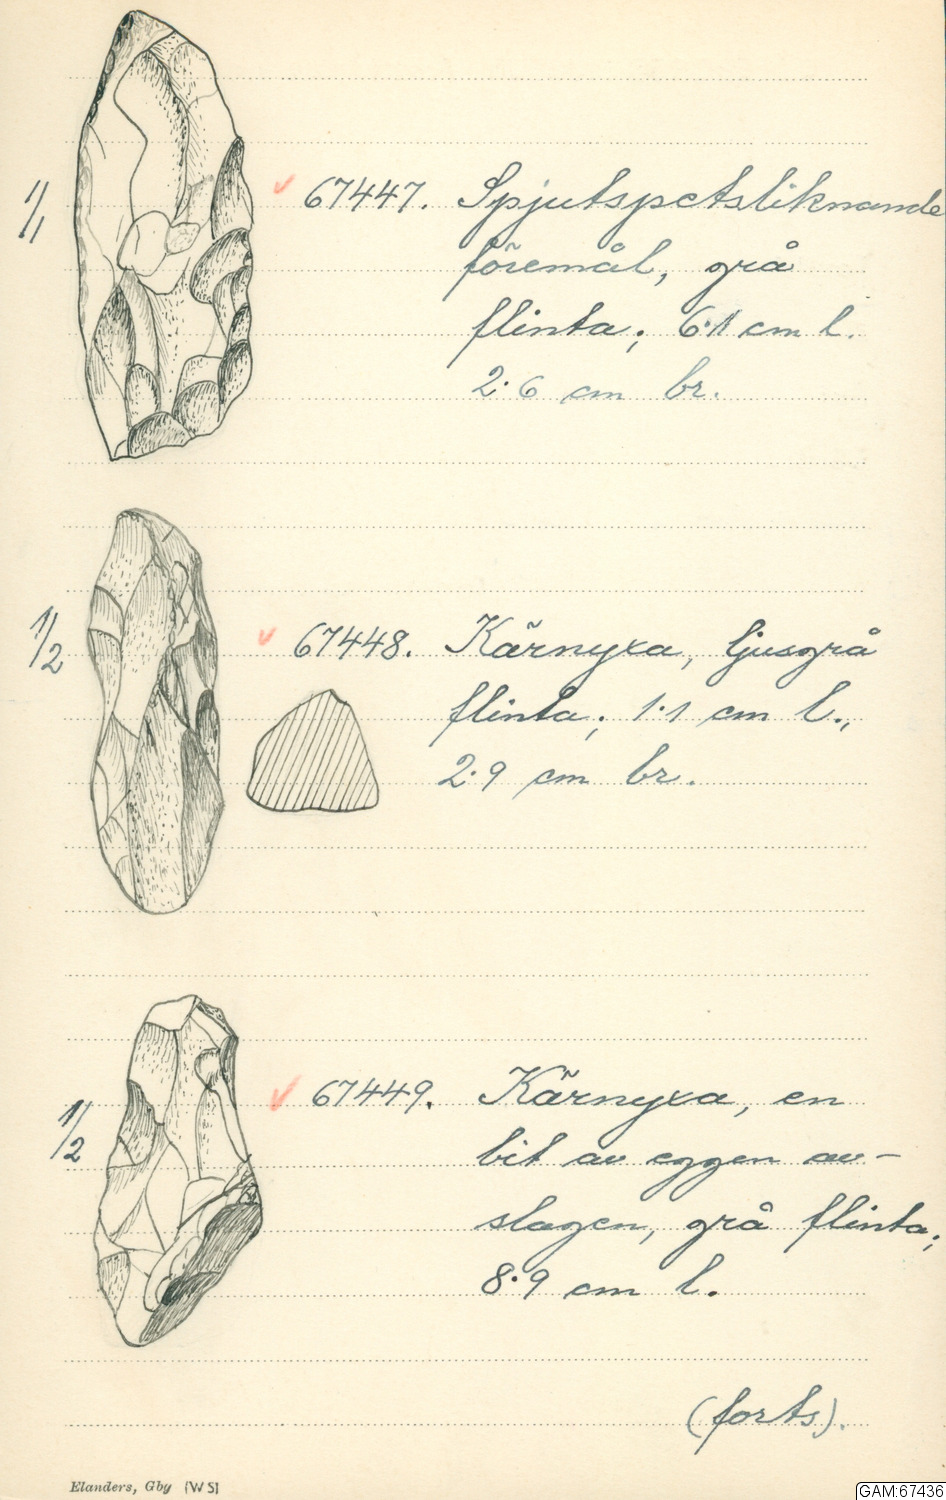 1/1
67447. Spjutspetsliknande
föremål, grå
flinta; 6·1 cm l.
2·6 cm br.
1/2
67448. Kärnyxa, ljusgrå
flinta; 1·1 cm l.,
2·9 cm br.
1/2
67449. Kärnyxa, en
bit av eggen av-
slagen, grå flinta;
8·9 cm l.
(forts).
Elanders, Gby (W5)
GAM:67436